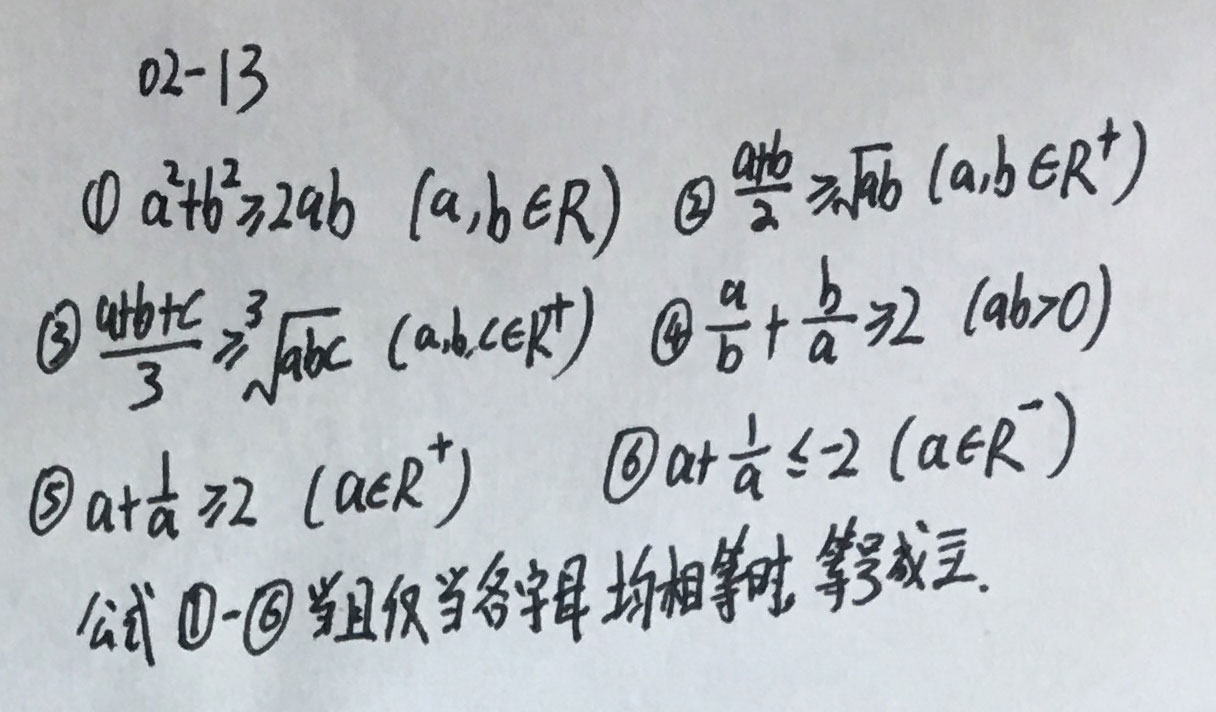 02-13
① a²+b²≥2ab (a,b∈R) ② \frac{a+b}{2}≥\sqrt{ab} (a,b∈R⁺)
③ \frac{a+b+c}{3}≥\sqrt[3]{abc} (a,b,c∈R⁺) ④ \frac{a}{b}+\frac{b}{a}≥2 (ab>0)
⑤ a+\frac{1}{a}≥2 (a∈R⁺) ⑥ a+\frac{1}{a}≤-2 (a∈R⁻)
公式①-⑥当且仅当各字母均相等时,等号成立.